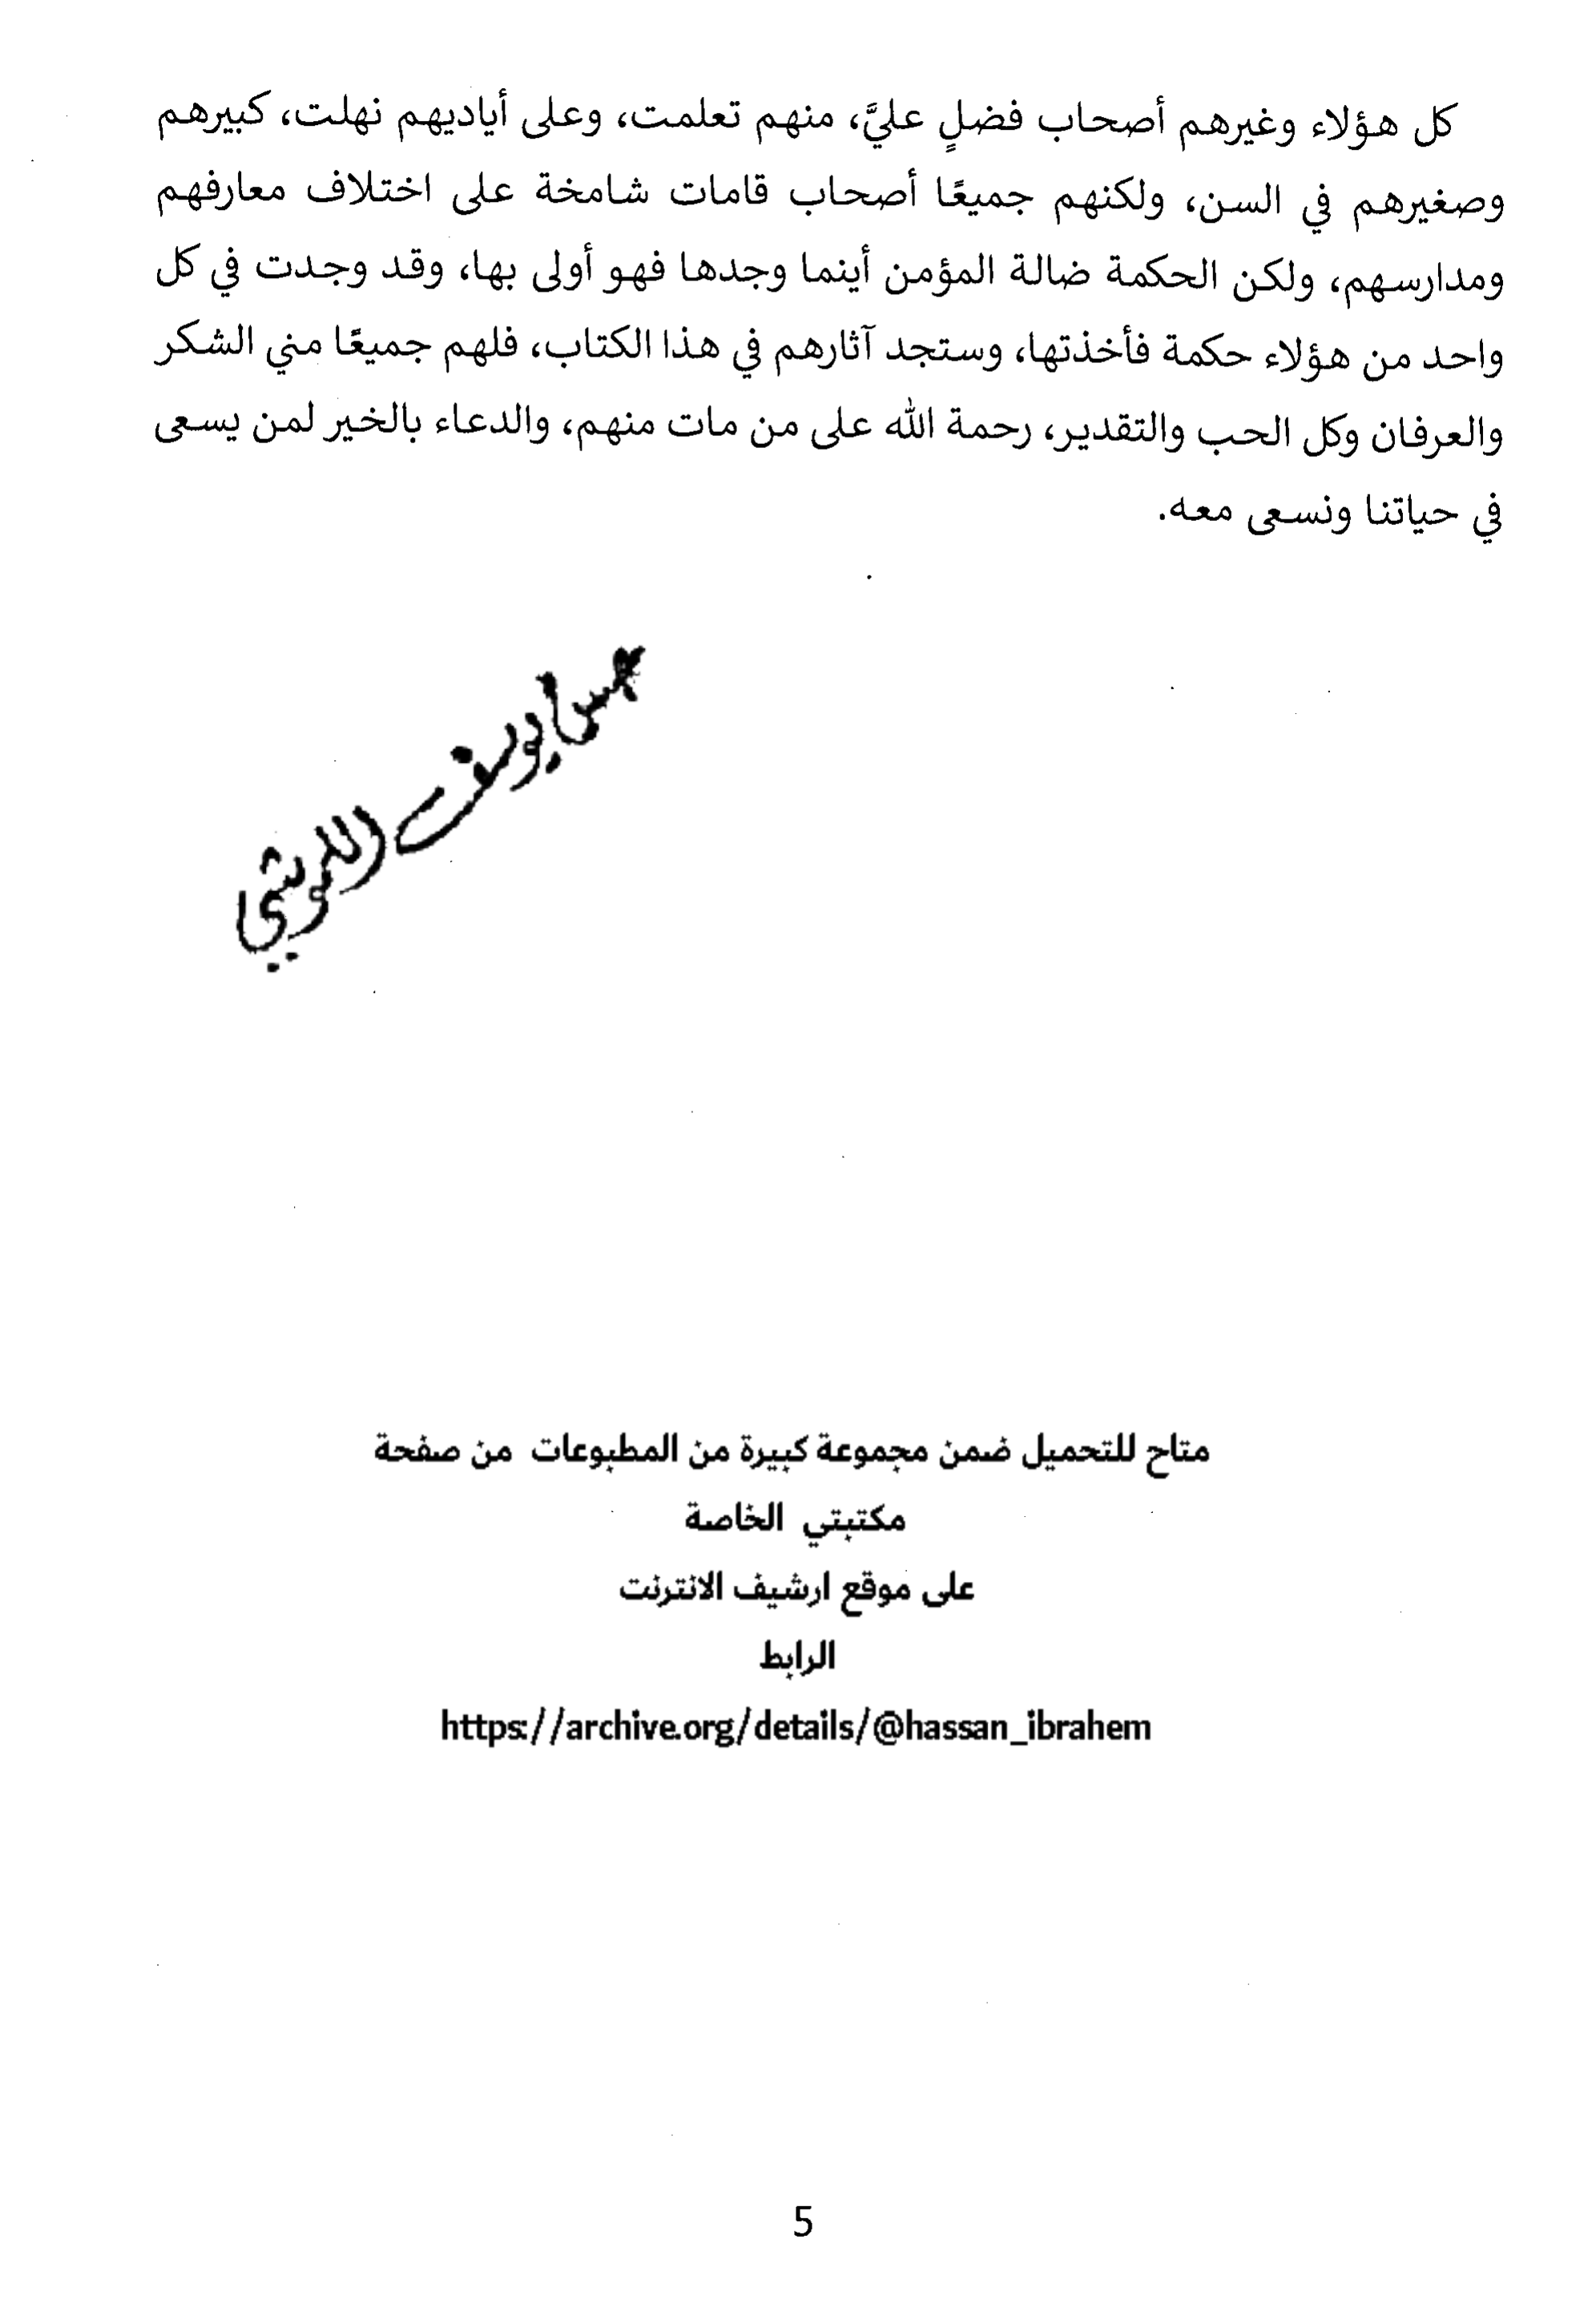 كل هؤلاء وغيرهم أصحاب فضلٍ عليَّ، منهم تعلمت، وعلى أياديهم نهلت، كبيرهم
وصغيرهم في السن، ولكنهم جميعًا أصحاب قامات شامخة على اختلاف معارفهم
ومدارسهم، ولكن الحكمة ضالة المؤمن أينما وجدها فهو أولى بها، وقد وجدت في كل
واحد من هؤلاء حكمة فأخذتها، وستجد آثارهم في هذا الكتاب، فلهم جميعًا مني الشكر
والعرفان وكل الحب والتقدير، رحمة الله على من مات منهم، والدعاء بالخير لمن يسعى
في حياتنا ونسعى معه.
يوسف
متاح للتحميل ضمن مجموعة كبيرة من المطبوعات من صفحة
مكتبتي الخاصة
على موقع ارشيف الانترنت
الرابط
https://archive.org/details/@hassan_ibrahem
5